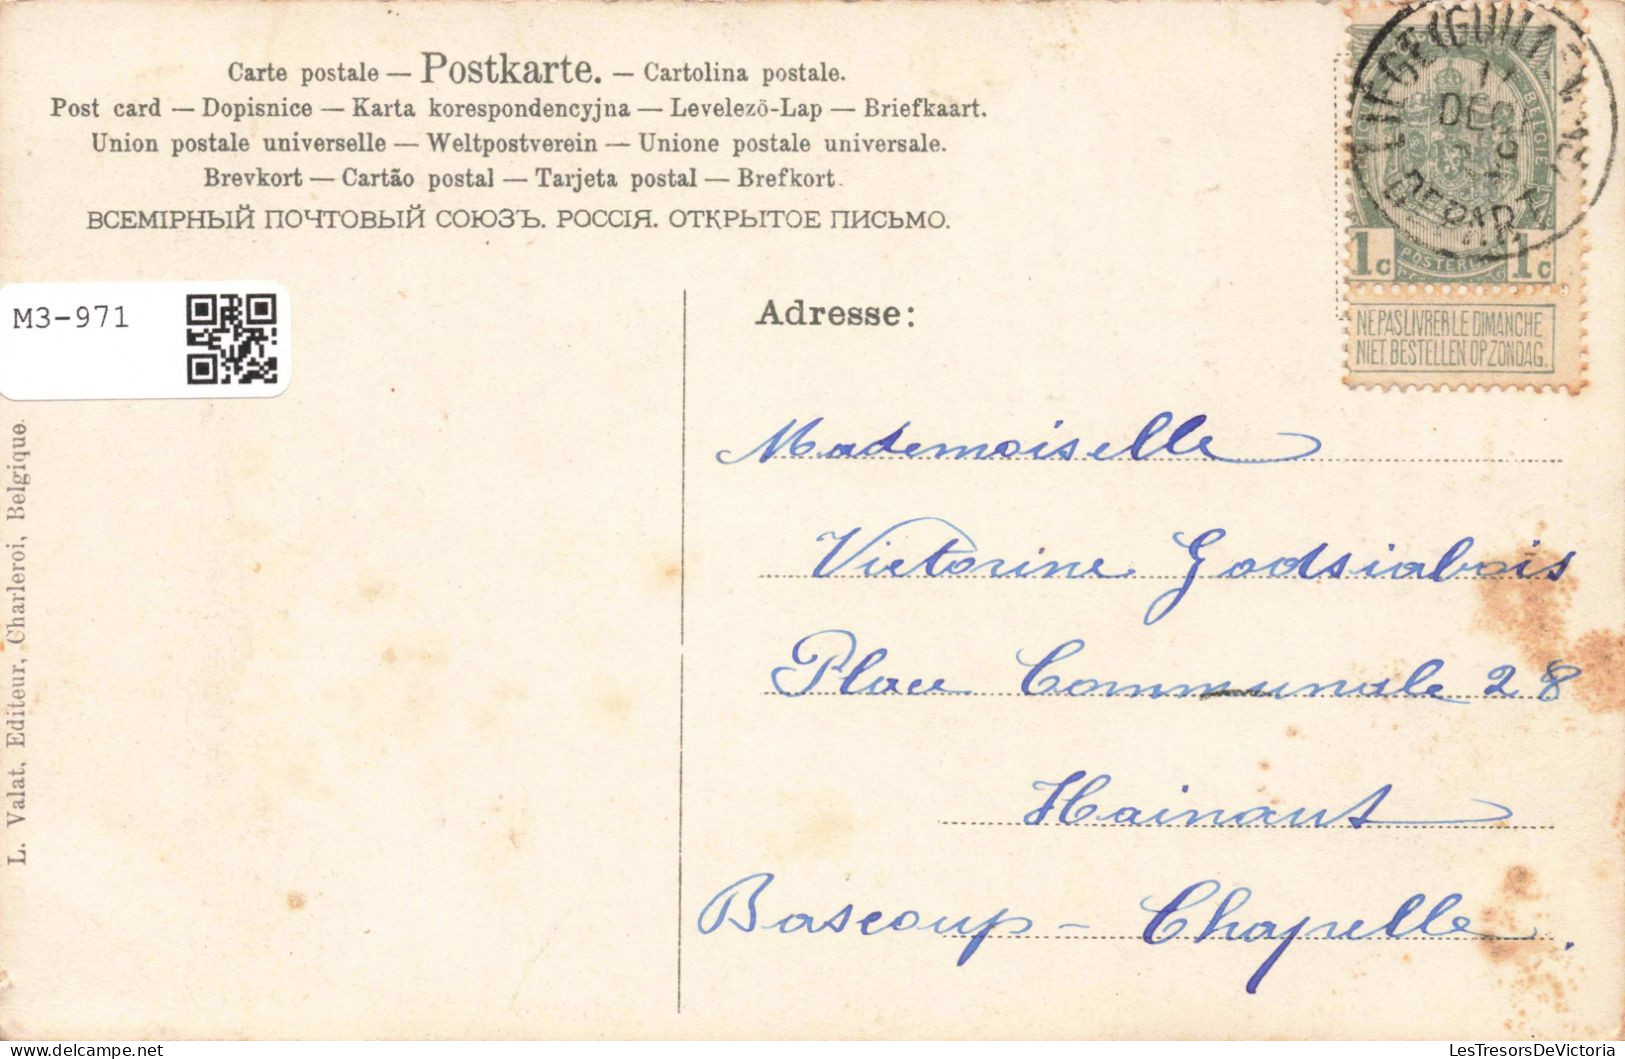 Carte postale — Postkarte. — Cartolina postale.
Post card — Dopisnice — Karta korespondencyjna — Levelező-Lap — Briefkaart.
Union postale universelle — Weltpostverein — Unione postale universale.
Brevkort — Cartão postal — Tarjeta postal — Brefkort.
ВСЕМІРНЫЙ ПОЧТОВЫЙ СОЮЗЪ. РОССІЯ. ОТКРЫТОЕ ПИСЬМО.
LIEGE (GUILLEMINS)
DEPART
1c POSTERIJ 1c
NE PAS LIVRER LE DIMANCHE
NIET BESTELLEN OP ZONDAG.
M3-971
Adresse:
Mademoiselle
Victorine Godsiabois
Place Communale 28
Hainaut
Bascoup - Chapelle.
L. Valat, Editeur, Charleroi, Belgique.
LesTresorsDeVictoria